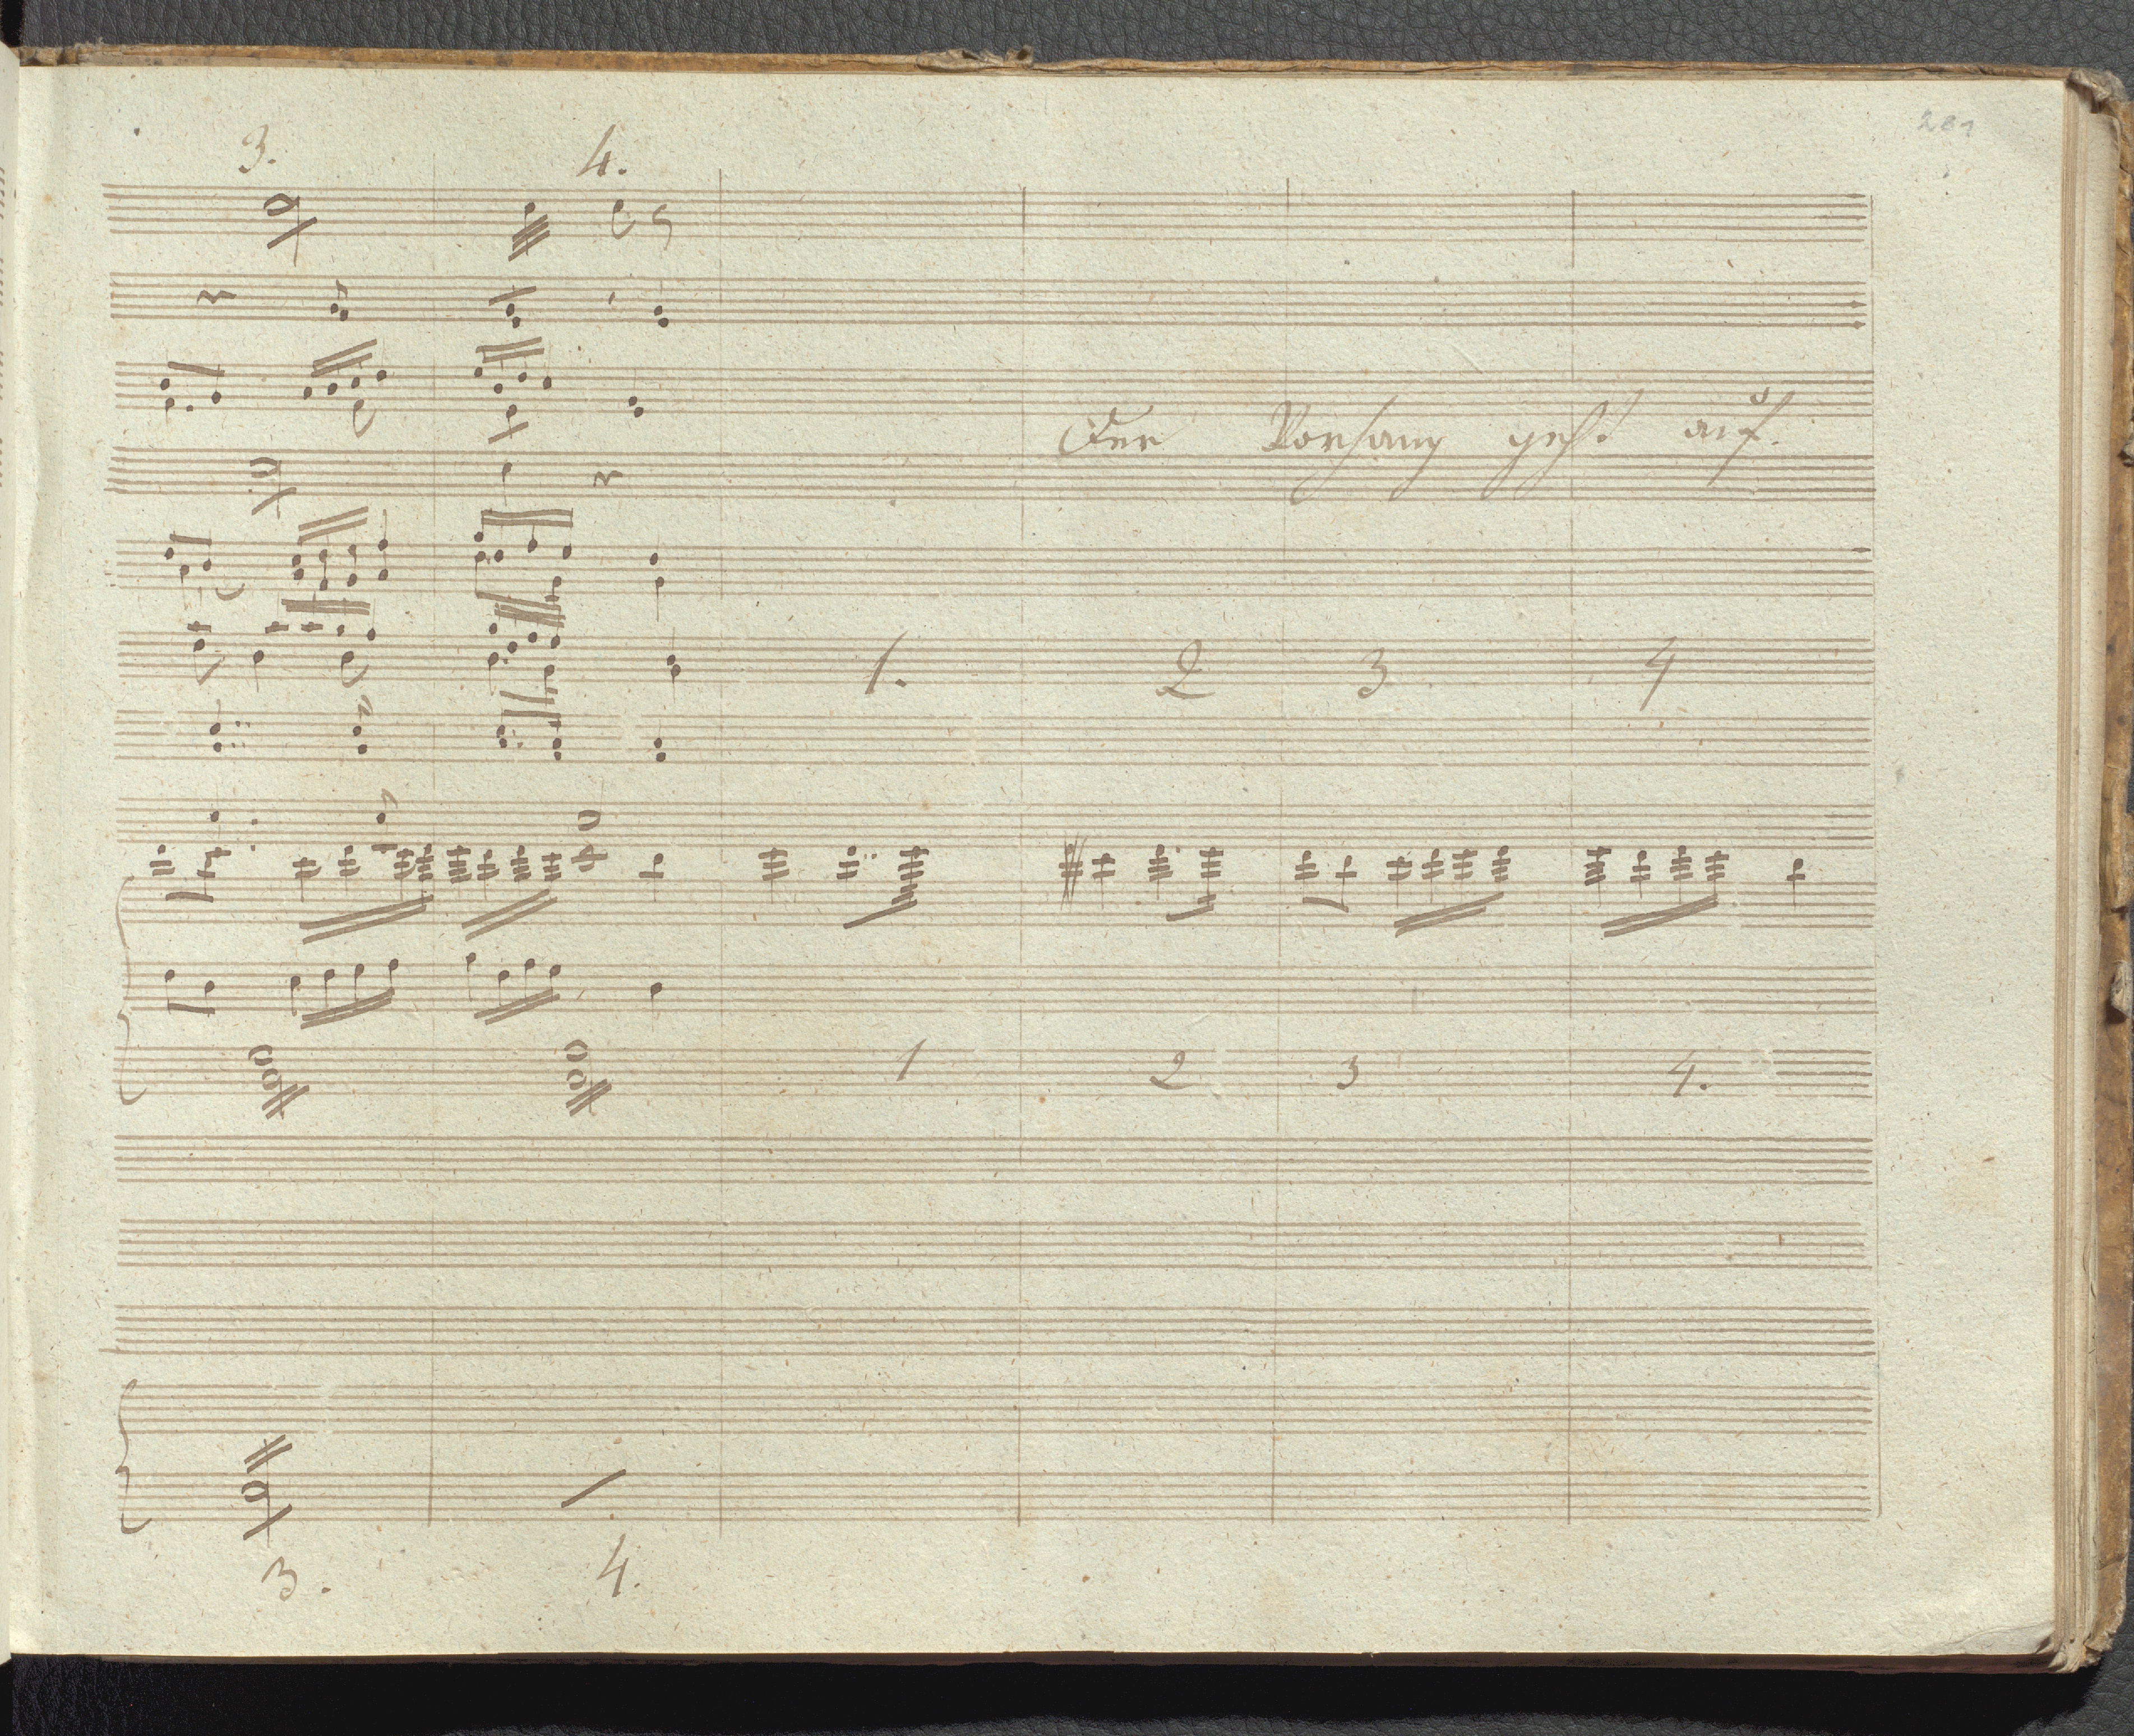 281
3. 4.
Der Vorhang geht auf.
1. 2 3 4
1 2 3 4.
3. 4.